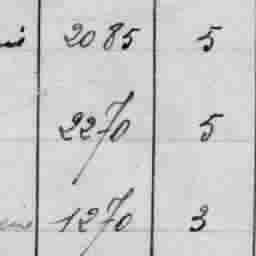 2085 5
2270 5
1270 3